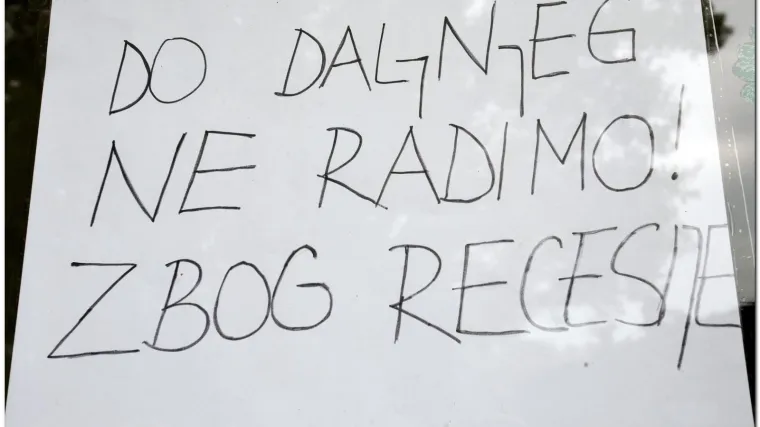 DO DALJNJEG
NE RADIMO!
ZBOG RECESIJE